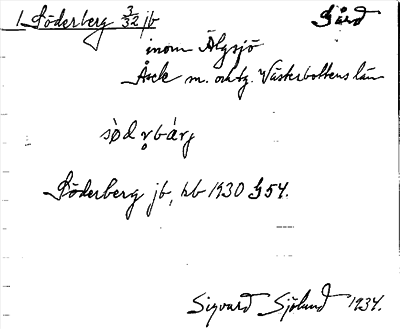 1 Söderberg 3/32 jb Gård
inom Älgsjö
Åsele m. omtg. Västerbottens län
sö̀dr̥bàrj
Söderberg jb, kb 1930 § 54.
Sigvard Sjölund 1934.